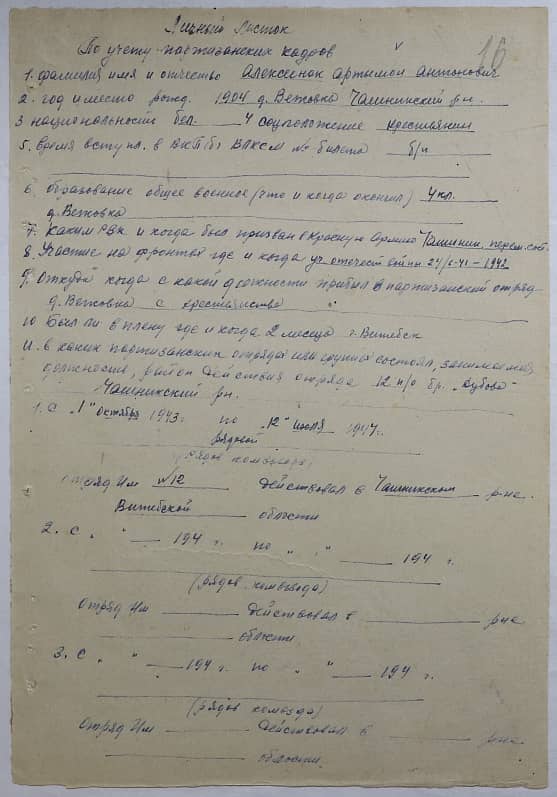 Личный листок
По учету партизанских кадров
16
1. фамилия имя и отчество Алексенак Артымон Антонович
2. год и место рожд. 1904 д. Вежовка Чашникский рн.
3 национальност бел. 4 соцположение крестьянин
5. время вступл. в ВКП(б) ВЛКСМ № билета б/п
6. образование общее военное (что и когда окончил) 4 кл.
д. Вежовка
7. Каким РВК и когда был призван в Красную Армию Чашник.
8. Участие на фронтах где и когда уч. отечест войны 24/6-41 - 1942
9. Откуда когда с какой должности прибыл в партизанский отряд
д. Вежовка с крестьянства
10 Был ли в плену где и когда 2 месяца г. Витебск
11. в каких партизанских отрядах или группах состоял, занимаемая
должность, район действия отряда 12 п/о бр. "Дубова"
Чашникский рн.
1. с "1" октября 1943 г. по "12" июля 1944 г.
рядовой
(рядов комвзвода)
Отряд Им №12 действовал в Чашникском р-не
Витебской области
2. с " " 194 г. по " " 194 г.
(рядов. комвзвода)
Отряд Им действовал в рне
области.
3. с " " 194 г. по " " 194 г.
(рядов комвзода)
Отряд Им действовал в рне
области.